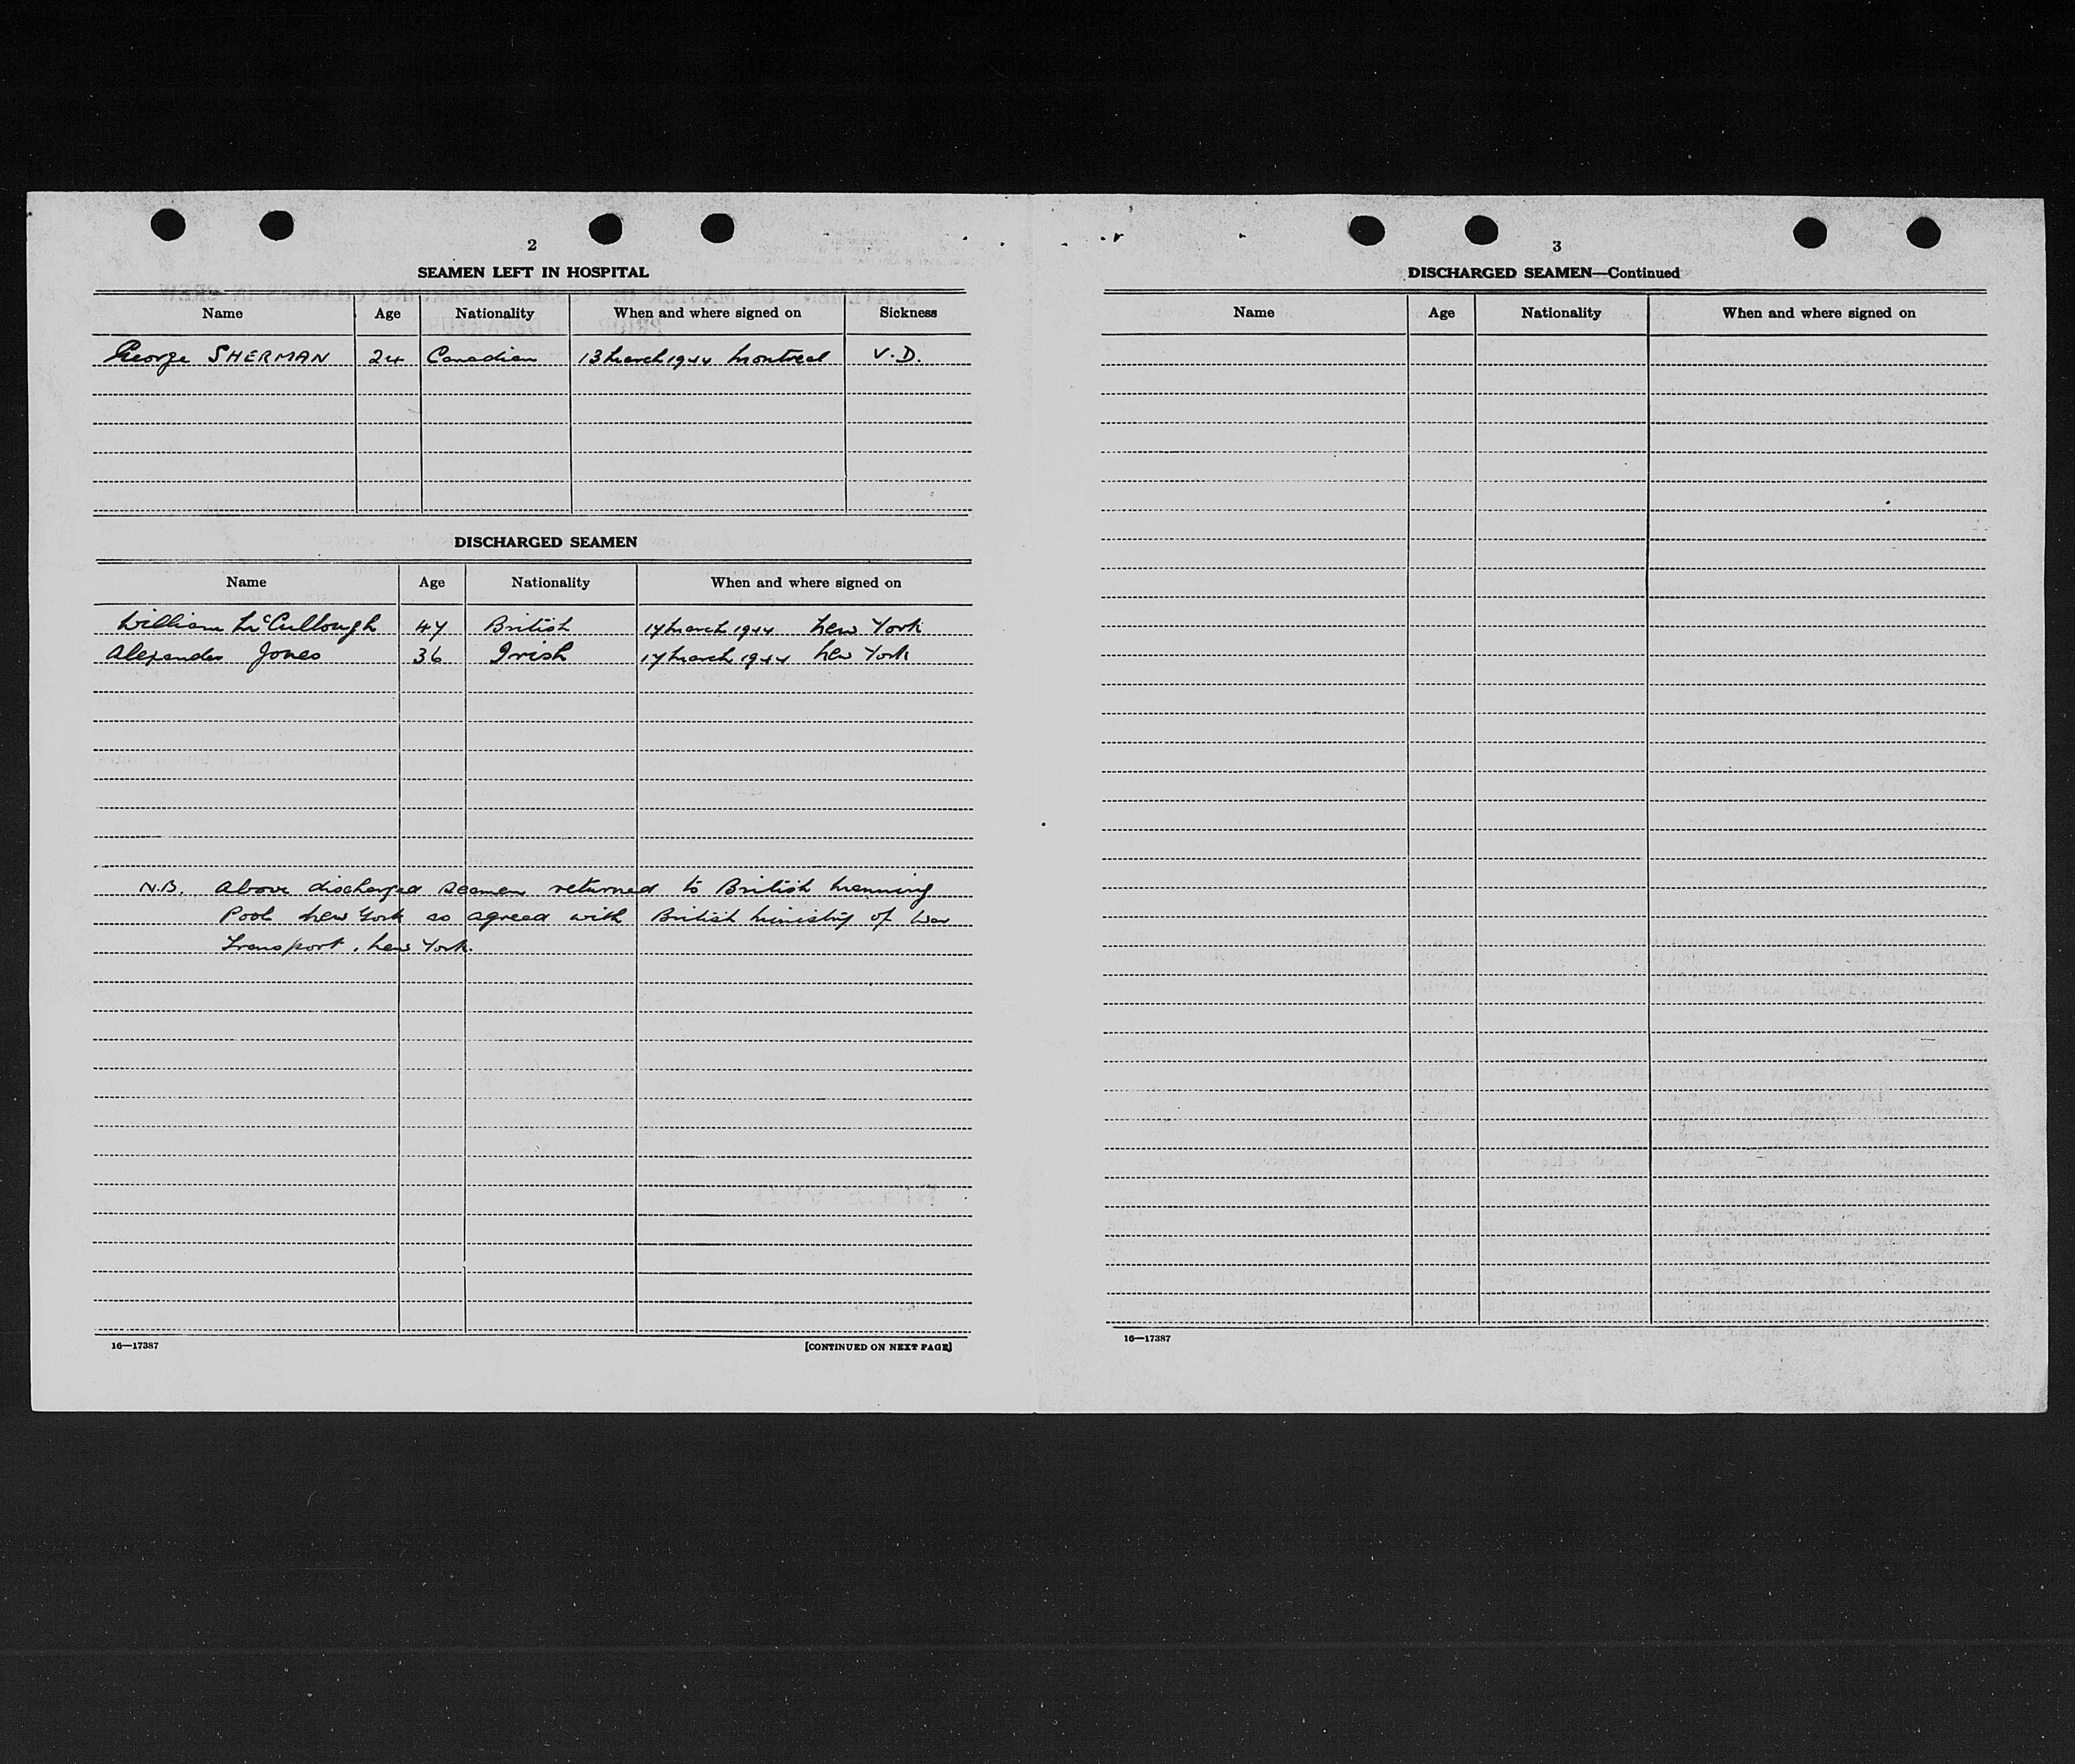 2
SEAMEN LEFT IN HOSPITAL
Name Age Nationality When and where signed on Sickness
George SHERMAN 24 Canadian 13 March 1944 Montreal V.D.
DISCHARGED SEAMEN
Name Age Nationality When and where signed on
William McCullough 47 British 17 March 1944 New York
Alexander Jones 36 Irish 17 March 1944 New York
N.B. Above discharged seamen returned to British Manning
Pool New York as agreed with British Ministry of War
Transport, New York.
16—17387 [CONTINUED ON NEXT PAGE]
3
DISCHARGED SEAMEN—Continued
Name Age Nationality When and where signed on
16—17387